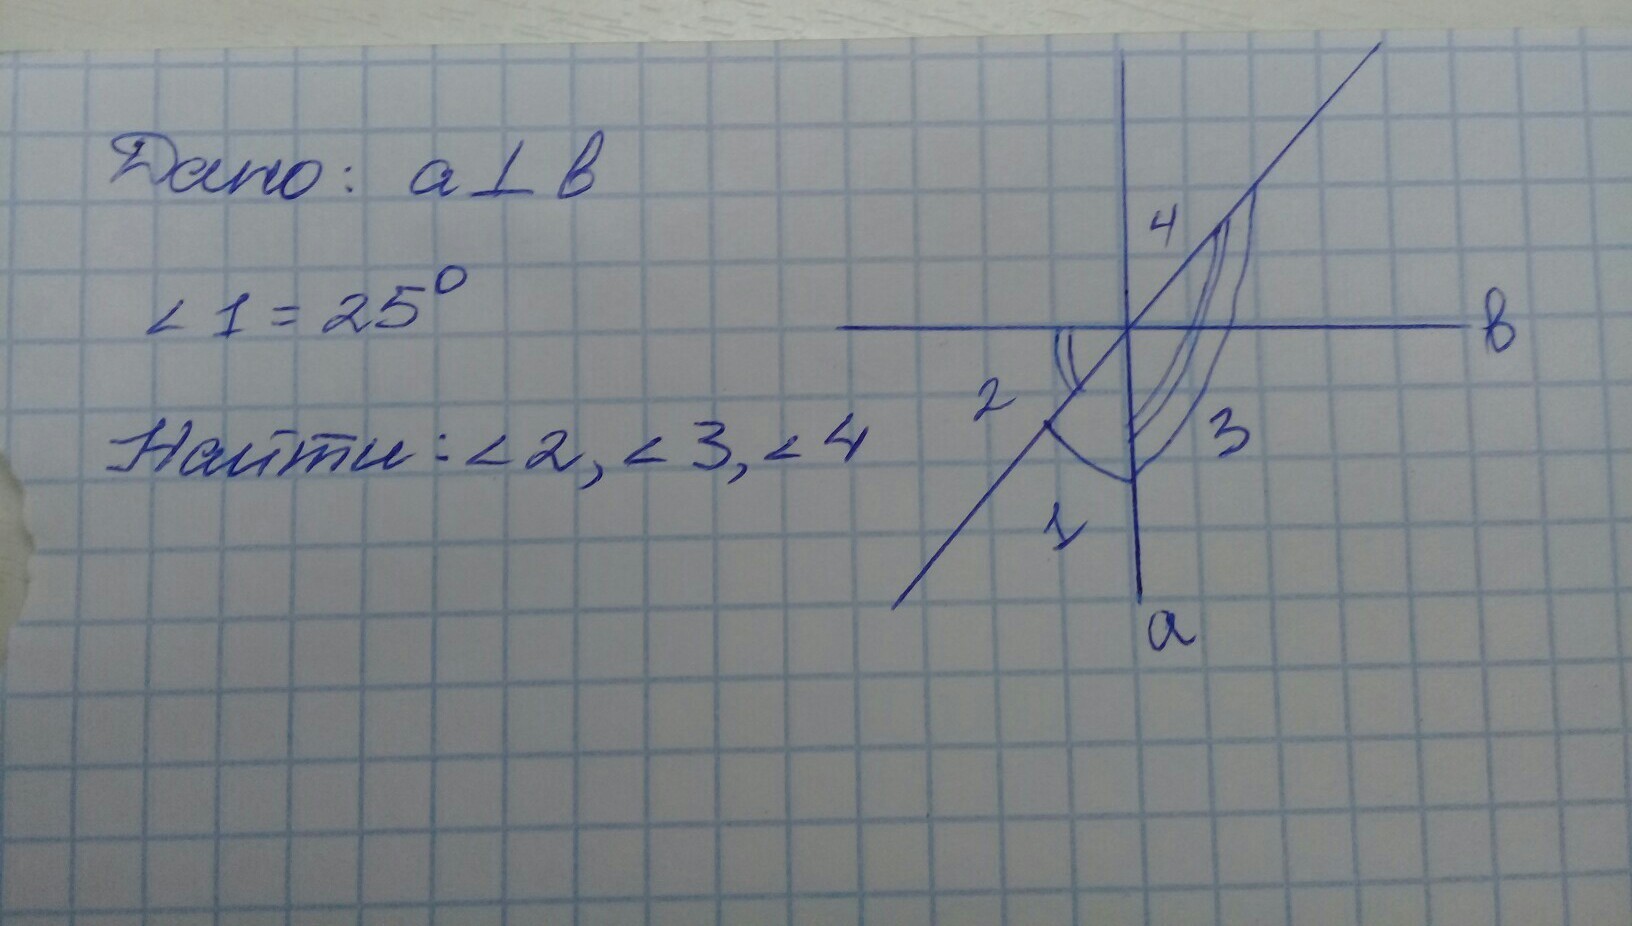 Дано: a ⊥ b
∠1 = 25°
Найти: ∠2, ∠3, ∠4
4
b
2
3
1
a